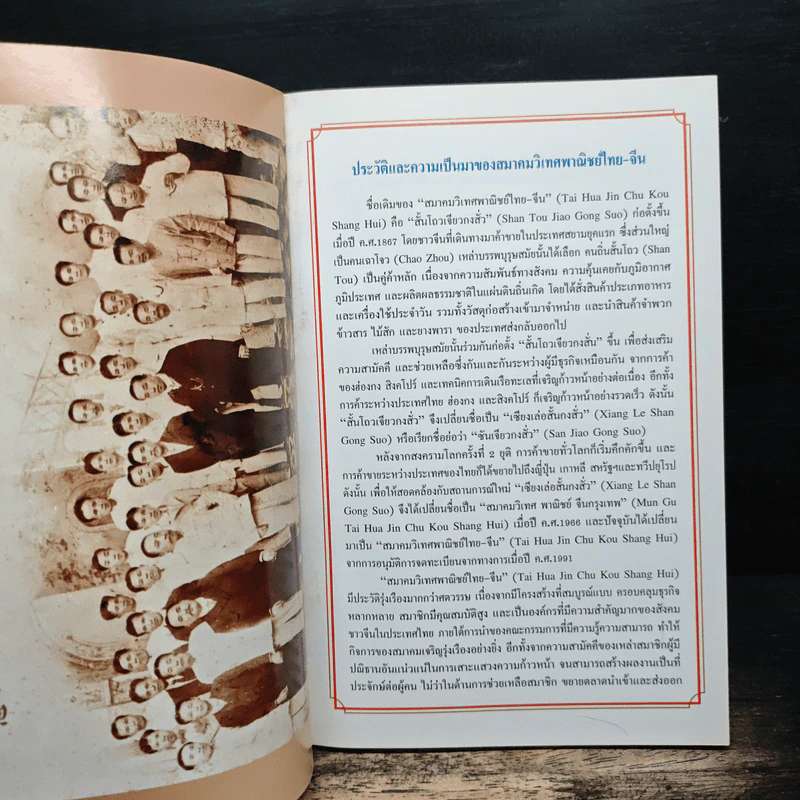 ประวัติและความเป็นมาของสมาคมวิเทศพาณิชย์ไทย-จีน
ชื่อเดิมของ “สมาคมวิเทศพาณิชย์ไทย-จีน” (Tai Hua Jin Chu Kou
Shang Hui) คือ “สั้นโถวเจียวกงสั่ว” (Shan Tou Jiao Gong Suo) ก่อตั้งขึ้น
เมื่อปี ค.ศ.1867 โดยชาวจีนที่เดินทางมาค้าขายในประเทศสยามยุคแรก ซึ่งส่วนใหญ่
เป็นคนเฉาโจว (Chao Zhou) เหล่าบรรพบุรุษสมัยนั้นได้เลือก คนถิ่นสั้นโถว (Shan
Tou) เป็นคู่ค้าหลัก เนื่องจากความสัมพันธ์ทางสังคม ความคุ้นเคยกับภูมิอากาศ
ภูมิประเทศ และผลิตผลธรรมชาติในแผ่นดินถิ่นเกิด โดยได้สั่งสินค้าประเภทอาหาร
และเครื่องใช้ประจำวัน รวมทั้งวัสดุก่อสร้างเข้ามาจำหน่าย และนำสินค้าจำพวก
ข้าวสาร ไม้สัก และยางพารา ของประเทศส่งกลับออกไป
เหล่าบรรพบุรุษสมัยนั้นร่วมกันก่อตั้ง “สั้นโถวเจียวกงสั่ว” ขึ้น เพื่อส่งเสริม
ความสามัคคี และช่วยเหลือซึ่งกันและกันระหว่างผู้มีธุรกิจเหมือนกัน จากการค้า
ของฮ่องกง สิงคโปร์ และเทคนิคการเดินเรือทะเลที่เจริญก้าวหน้าอย่างต่อเนื่อง อีกทั้ง
การค้าระหว่างประเทศไทย ฮ่องกง และสิงคโปร์ ก็เจริญก้าวหน้าอย่างรวดเร็ว ดังนั้น
“สั้นโถวเจียวกงสั่ว” จึงเปลี่ยนชื่อเป็น “เซียงเล่อสั้นกงสั่ว” (Xiang Le Shan
Gong Suo) หรือเรียกชื่อย่อว่า “ซันเจียวกงสั่ว” (San Jiao Gong Suo)
หลังจากสงครามโลกครั้งที่ 2 ยุติ การค้าขายทั่วโลกก็เริ่มคึกคักขึ้น และ
การค้าขายระหว่างประเทศของไทยก็ได้ขยายไปถึงญี่ปุ่น เกาหลี สหรัฐฯและทวีปยุโรป
ดังนั้น เพื่อให้สอดคล้องกับสถานการณ์ใหม่ “เซียงเล่อสั้นกงสั่ว” (Xiang Le Shan
Gong Suo) จึงได้เปลี่ยนชื่อเป็น “สมาคมวิเทศ พาณิชย์ จีนกรุงเทพ” (Mun Gu
Tai Hua Jin Chu Kou Shang Hui) เมื่อปี ค.ศ.1966 และปัจจุบันได้เปลี่ยน
มาเป็น “สมาคมวิเทศพาณิชย์ไทย-จีน” (Tai Hua Jin Chu Kou Shang Hui)
จากการอนุมัติการจดทะเบียนจากทางการเมื่อปี ค.ศ.1991
“สมาคมวิเทศพาณิชย์ไทย-จีน” (Tai Hua Jin Chu Kou Shang Hui)
มีประวัติรุ่งเรืองมากกว่าศตวรรษ เนื่องจากมีโครงสร้างที่สมบูรณ์แบบ ครอบคลุมธุรกิจ
หลากหลาย สมาชิกมีคุณสมบัติสูง และเป็นองค์กรที่มีความสำคัญมากของสังคม
ชาวจีนในประเทศไทย ภายใต้การนำของคณะกรรมการที่มีความรู้ความสามารถ ทำให้
กิจการของสมาคมเจริญรุ่งเรืองอย่างยิ่ง อีกทั้งจากความสามัคคีของเหล่าสมาชิกผู้มี
ปณิธานอันแน่วแน่ในการเสาะแสวงความก้าวหน้า จนสามารถสร้างผลงานเป็นที่
ประจักษ์ต่อผู้คน ไม่ว่าในด้านการช่วยเหลือสมาชิก ขยายตลาดนำเข้าและส่งออก